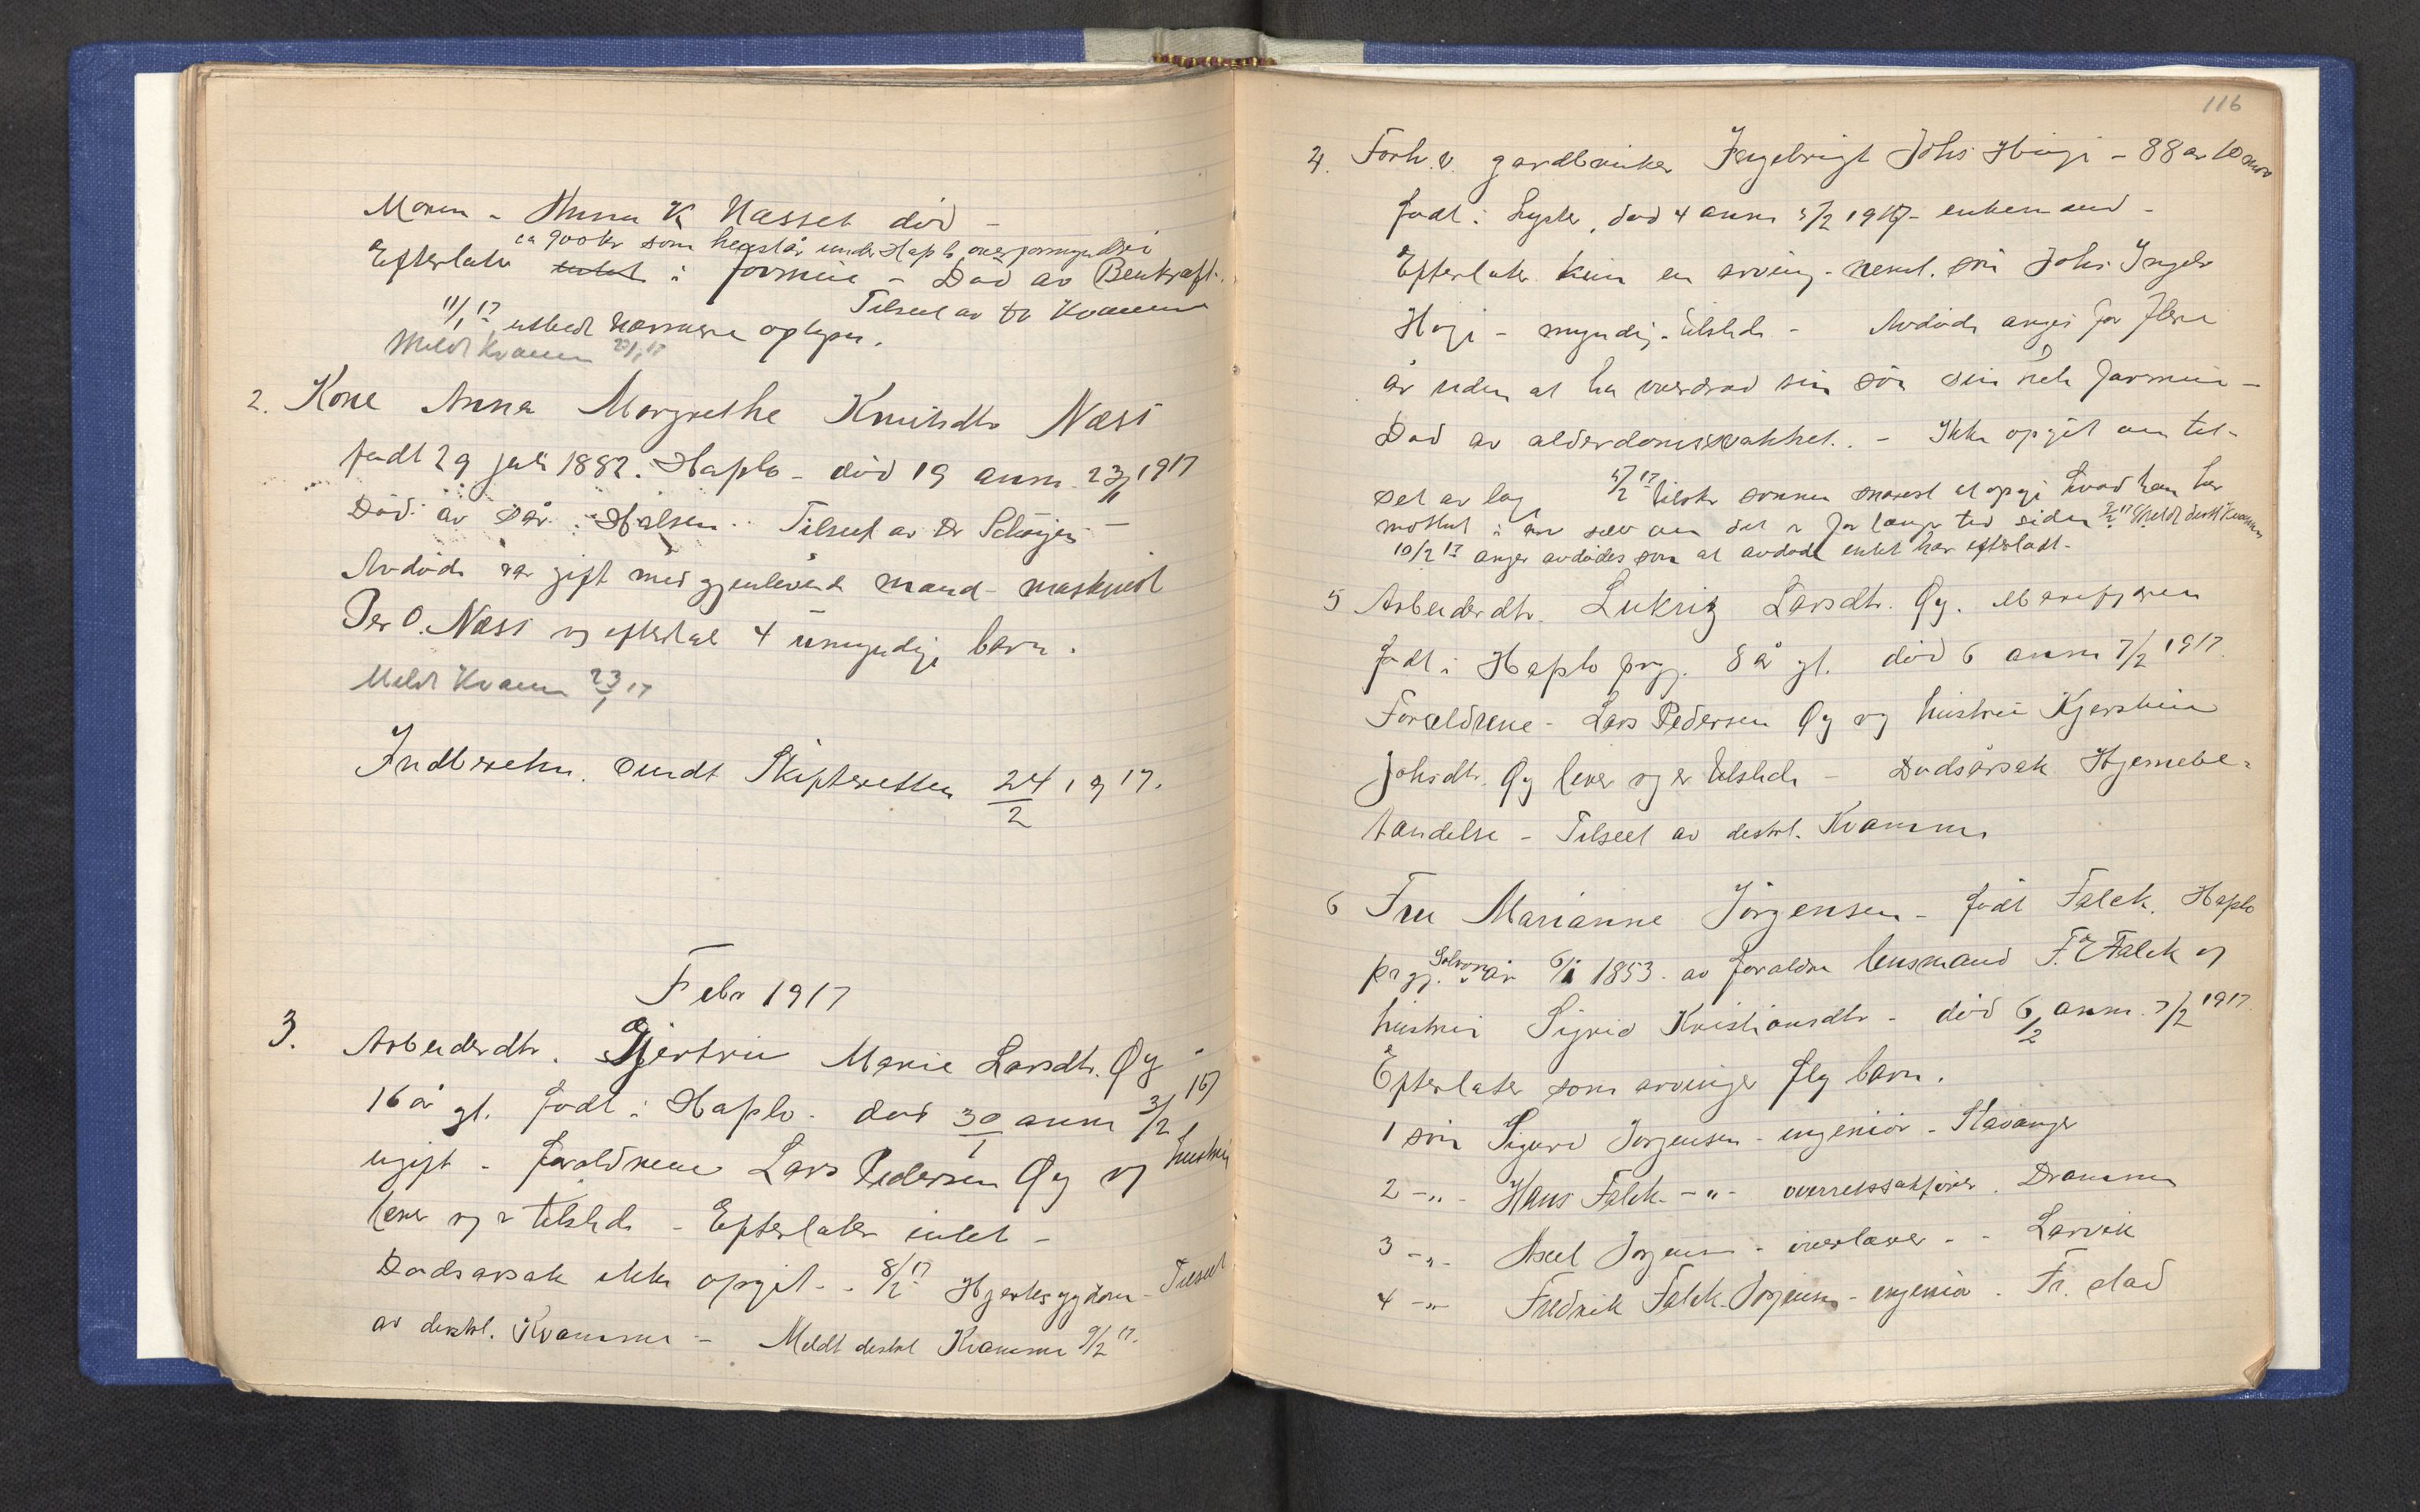 Moren - Anna K Næsset död -
ca 900 kr som henstår under Haflo overformynderi
Efterlater intet i formue - Död av Benkræft.
Tilseet av Dr Kvamme
11/1 17 utbedt nærmere oplysn.
Meldt Kvamm 23/1 17
2. Kone Anna Margrethe Knutsdtr Næss
födt 29 juli 1882. Haflo - död 19 anm. 23/1 1917
Död av sår i Halsen. Tilseet av Dr
Avdöde var gift med gjenlevende mand - maskinist
Per O. Næss og efterlat 4 umyndige barn.
Meldt Kvamm 23/1 17
Indberetn. sendt Skifteretten 24/2 1917.
Febr 1917
3. Arbeiderdtr. Gjertrud Marie Larsdtr. Øy -
16 år gl. födt i Haflo - död 30/1 anm 3/2 17
ugift - forældrene Lars Pedersen Øy og hustru
lever og er tilstede - Efterlater intet -
Dödsarsak ikke opgit - 8/2 17 Hjertesygdom - Tilseet
av distrl. Kvamme - Meldt distrl Kvamme 9/2 17.
116
4. Forh.v. gardbruker Ingebrigt Johs - 88 år 10 mdr
födt i Luster, död 4 anm 5/2 1917 - enkemand -
Efterlater kun en arving - neml. sön Johs Ingebr
- myndig - tilstede - Avdöde anges for flere
år siden at ha overdrad sin sön sin hele formue -
Död av alderdomssvakhet. - Ikke opgit om til-
set av læge 5/2 17 tilskr sönnen snarest at opgi hvad han har
mottat i arv selv om det er for længe tid siden 9/2 17 Meldt distrl Kvamm
10/2 17 anger avdödes sön at avdöde intet har efterladt -
5 Arbeiderdtr. Lukris Larsdtr. Øy. Marifjøren
födt i Haflo prgj. 8 år gl. död 6 anm 7/2 1917
Forældrene - Lars Pedersen Øy og hustru Kjerstine
Johsdtr. Øy lever og er tilstede - Dödsårsak Hjernebe-
tændelse - Tilseet av distrl. Kvamme
6 Fru Marianne Jörgensen - födt Falck. Haflo
prgj. Solvorn år 6/1 1853 - av forældre lensmand F. Falck og
hustru Sigrid Kristiansdtr - död 6/2 anm. 7/2 1917
Efterlater som arvinger flg barn.
1 sön Sigurd Jörgensen - ingeniör - Stavanger
2 -"- Hans Falck -"- overretssakförer. Drammen
3 -"- Axel Jörgensen - overlærer - - Larvik
4 -"- Fredrik Falck-Jörgensen - ingeniör - Fr. stad